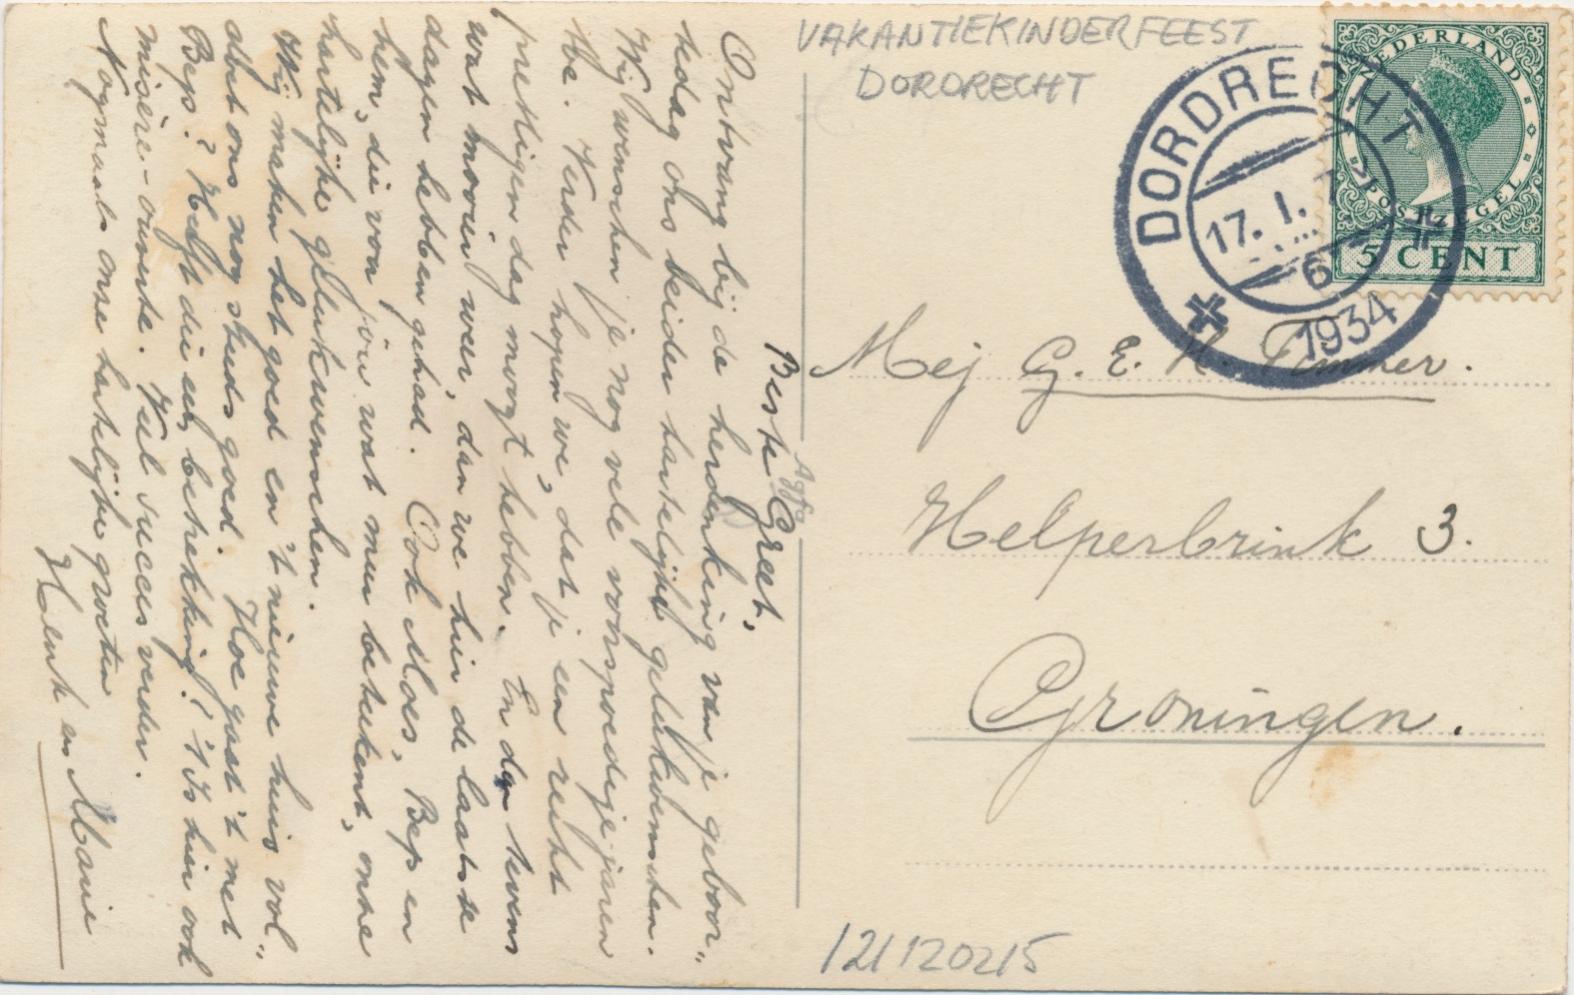 VAKANTIEKINDERFEEST
DORDRECHT
NEDERLAND
POSTZEGEL
5 CENT
DORDRECHT
17. I.
6
1934
Beste Greet,
Ontvang bij de herdenking van je geboor-
tedag ons beider hartelijke gelukwenschen.
Wij wenschen je nog vele voorspoedige jaren
toe. Verder hopen we, dat je een recht
prettigen dag moogt hebben. En dan tevens
wat mooier weer, dan we hier de laatste
dagen hebben gehad. Ook Moes, Bep en
hem, die voor jou wat meer beteekent, onze
hartelijke gelukwenschen.
Wij maken het goed en 't nieuwe huis vol-
doet ons nog steeds goed. Hoe gaat 't met
Bep? Heeft die een betrekking? 't Is hier ook
misère-ouverte. Veel succes verder.
Nogmaals onze hartelijke groeten
Henk en Marie
Agfa
Mej G. E. H. Fimmer.
Helperbrink 3.
Groningen.
121120215